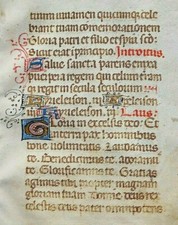 num unam en quicumq; cele
brant tuam comemorationem
Gloria patri et filio et spui
sicut erat principio. Introitus.
Salue sancta parens enixa
puerpera regem qui celum
regit in secula seculorum
Kyrieleison. iij
eleison. iij Laus.
Gloria in excelsis deo. Et
in terra pax hominibus
bone voluntatis. Laudamus
te. Benedicimus te. adoramus
te. Glorificamus te. Gratias
agimus tibi propter magnam
gloriam tuam Domine deus rex
celestis deus pater omnipotens